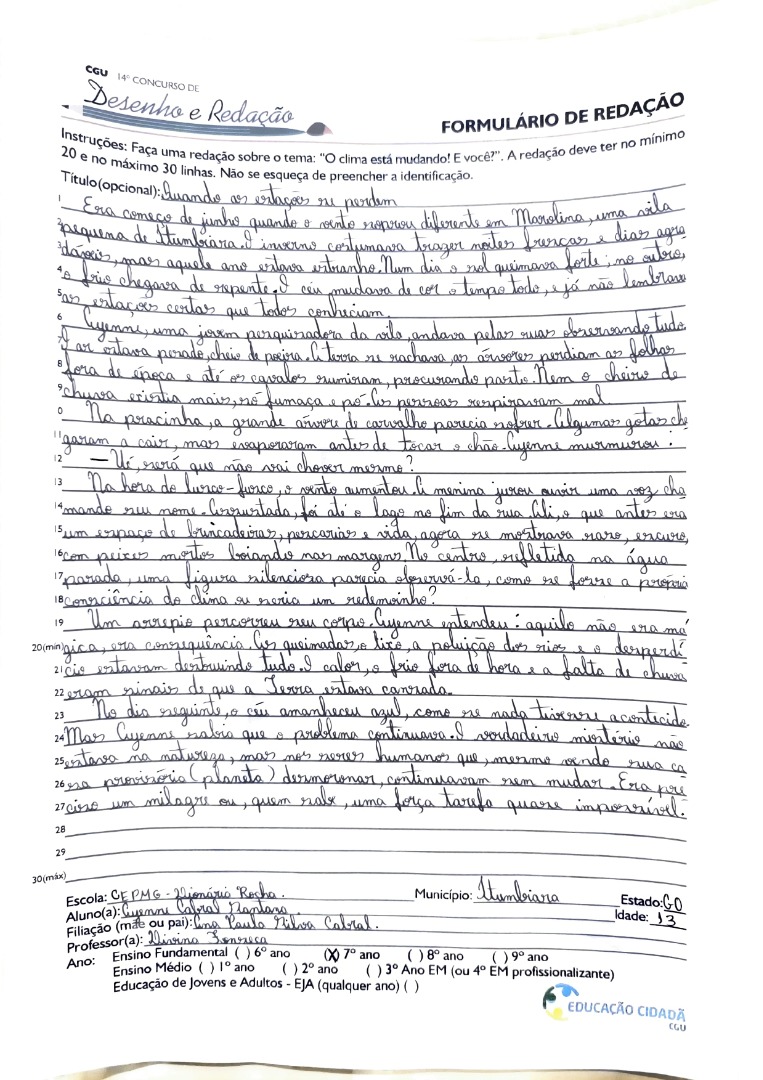 CGU 14º CONCURSO DE
Desenho e Redação
FORMULÁRIO DE REDAÇÃO
Instruções: Faça uma redação sobre o tema: "O clima está mudando! E você?". A redação deve ter no mínimo
20 e no máximo 30 linhas. Não se esqueça de preencher a identificação.
Título(opcional): Quando as estações se perdem
1 Era começo de junho quando o vento soprou diferente em Marolina, uma vila
2 pequena de Itumbiara. O inverno costumava trazer noites frescas e dias agra
3 dáveis, mas aquele ano estava estranho. Num dia o sol queimava forte; no outro,
4 o frio chegava de repente. O céu mudava de cor o tempo todo, e já não lembrava
5 as estações certas que todos conheciam.
6 Cyenne, uma jovem pesquisadora da vila, andava pelas ruas observando tudo.
7 O ar estava pesado, cheio de poeira. A terra se rachava, as árvores perdiam as folhas
8 fora de época e até os cavalos sumiram, procurando pasto. Nem o cheiro de
9 chuva existia mais, só fumaça e pó. As pessoas respiravam mal
0 Na pracinha, a grande árvore de carvalho parecia sofrer. Algumas gotas che
11 garam a cair, mas evaporaram antes de tocar o chão. Cyenne murmurou:
12 — Ué, será que não vai chover mesmo?
13 Na hora do lusco-fusco, o vento aumentou. A menina jurou ouvir uma voz cha
14 mando seu nome. Assustada, foi até o lago no fim da rua. Ali, o que antes era
15 um espaço de brincadeiras, pescarias e vida, agora se mostrava raso, escuro,
16 com peixes mortos boiando nas margens. No centro, refletida na água
17 parada, uma figura silenciosa parecia observá-la, como se fosse a própria
18 consciência do clima ou seria um redemoinho?
19 Um arrepio percorreu seu corpo. Cyenne entendeu: aquilo não era má
20(min) gica, era consequência. As queimadas, o lixo, a poluição dos rios e o desperdí
21 cio estavam destruindo tudo. O calor, o frio fora de hora e a falta de chuva
22 eram sinais de que a Terra estava cansada.
23 No dia seguinte, o céu amanheceu azul, como se nada tivesse acontecido.
24 Mas Cyenne sabia que o problema continuava. O verdadeiro mistério não
25 estava na natureza, mas nos seres humanos que, mesmo vendo sua ca
26 sa provisória (planeta) desmoronar, continuavam sem mudar. Era pre
27 ciso um milagre ou, quem sabe, uma força tarefa quase impossível.
28
29
30(máx)
Escola: CEPMG - Dionária Rocha. Município: Itumbiara Estado: GO
Aluno(a): Cyenne Cabral Idade: 13
Filiação (mãe ou pai): Ana Paula Silva Cabral.
Professor(a): Divina Fonseca
Ano: Ensino Fundamental ( ) 6º ano (X) 7º ano ( ) 8º ano ( ) 9º ano
Ensino Médio ( ) 1º ano ( ) 2º ano ( ) 3º Ano EM (ou 4º EM profissionalizante)
Educação de Jovens e Adultos - EJA (qualquer ano) ( )
EDUCAÇÃO CIDADÃ
CGU